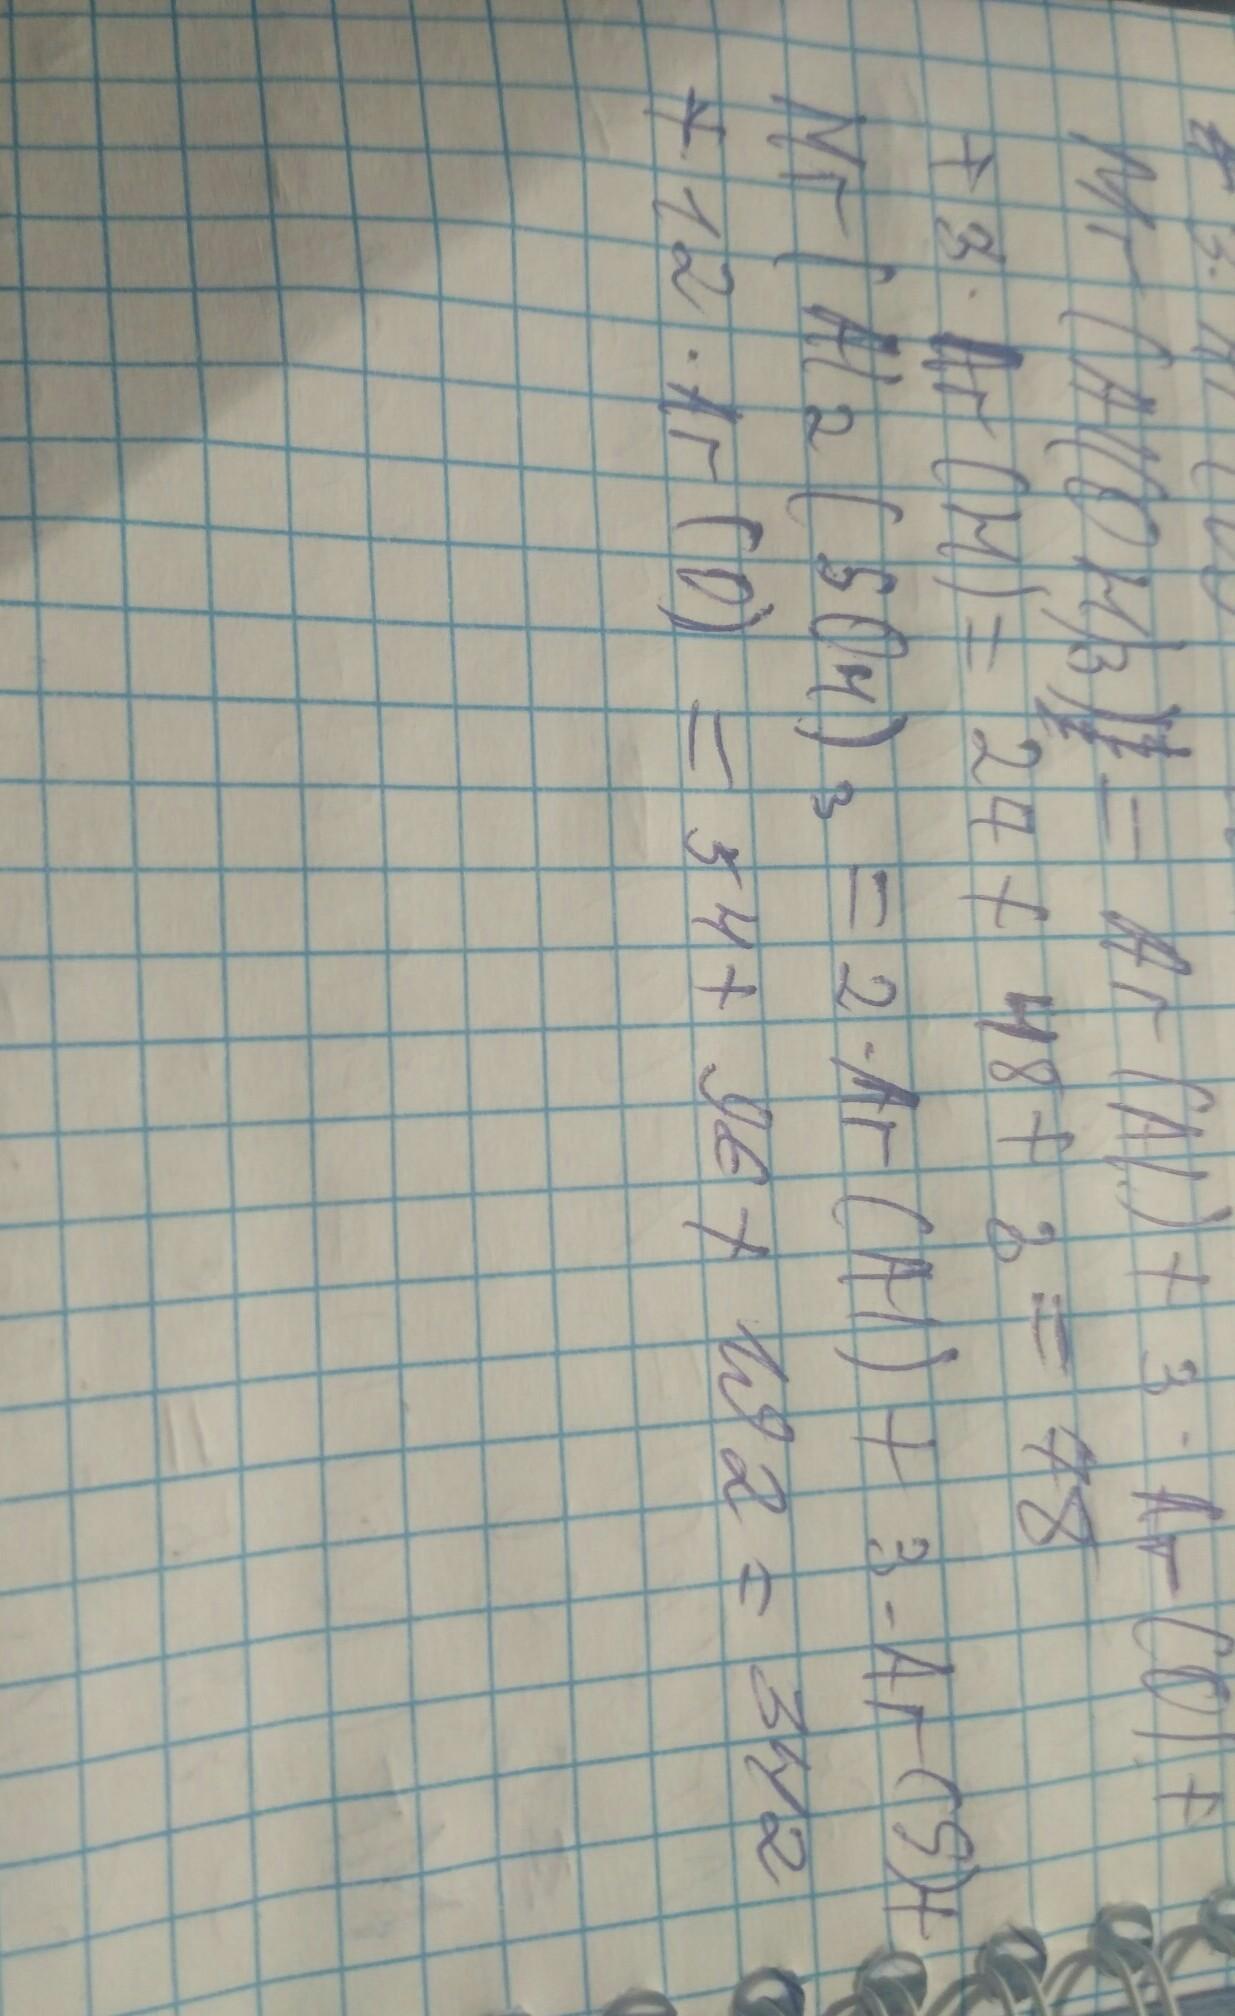 3·Ar(
Mr(Al(OH)3) = Ar(Al) + 3·Ar(O) +
+ 3·Ar(H) = 27 + 48 + 3 = 78
Mr(Al2(SO4)3 = 2·Ar(Al) + 3·Ar(S) +
+ 12·Ar(O) = 54 + 96 + 192 = 342